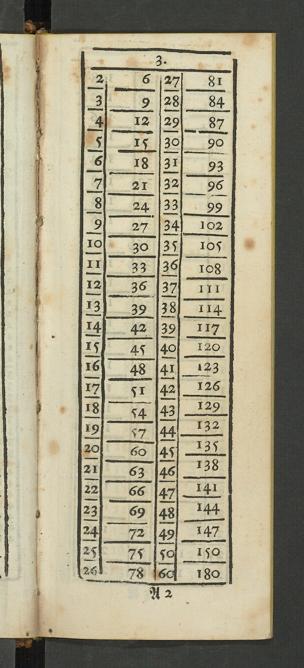 3.
2 6 27 81
3 9 28 84
4 12 29 87
5 15 30 90
6 18 31 93
7 21 32 96
8 24 33 99
9 27 34 102
10 30 35 105
11 33 36 108
12 36 37 111
13 39 38 114
14 42 39 117
15 45 40 120
16 48 41 123
17 51 42 126
18 54 43 129
19 57 44 132
20 60 45 135
21 63 46 138
22 66 47 141
23 69 48 144
24 72 49 147
25 75 50 150
26 78 60 180
A 2